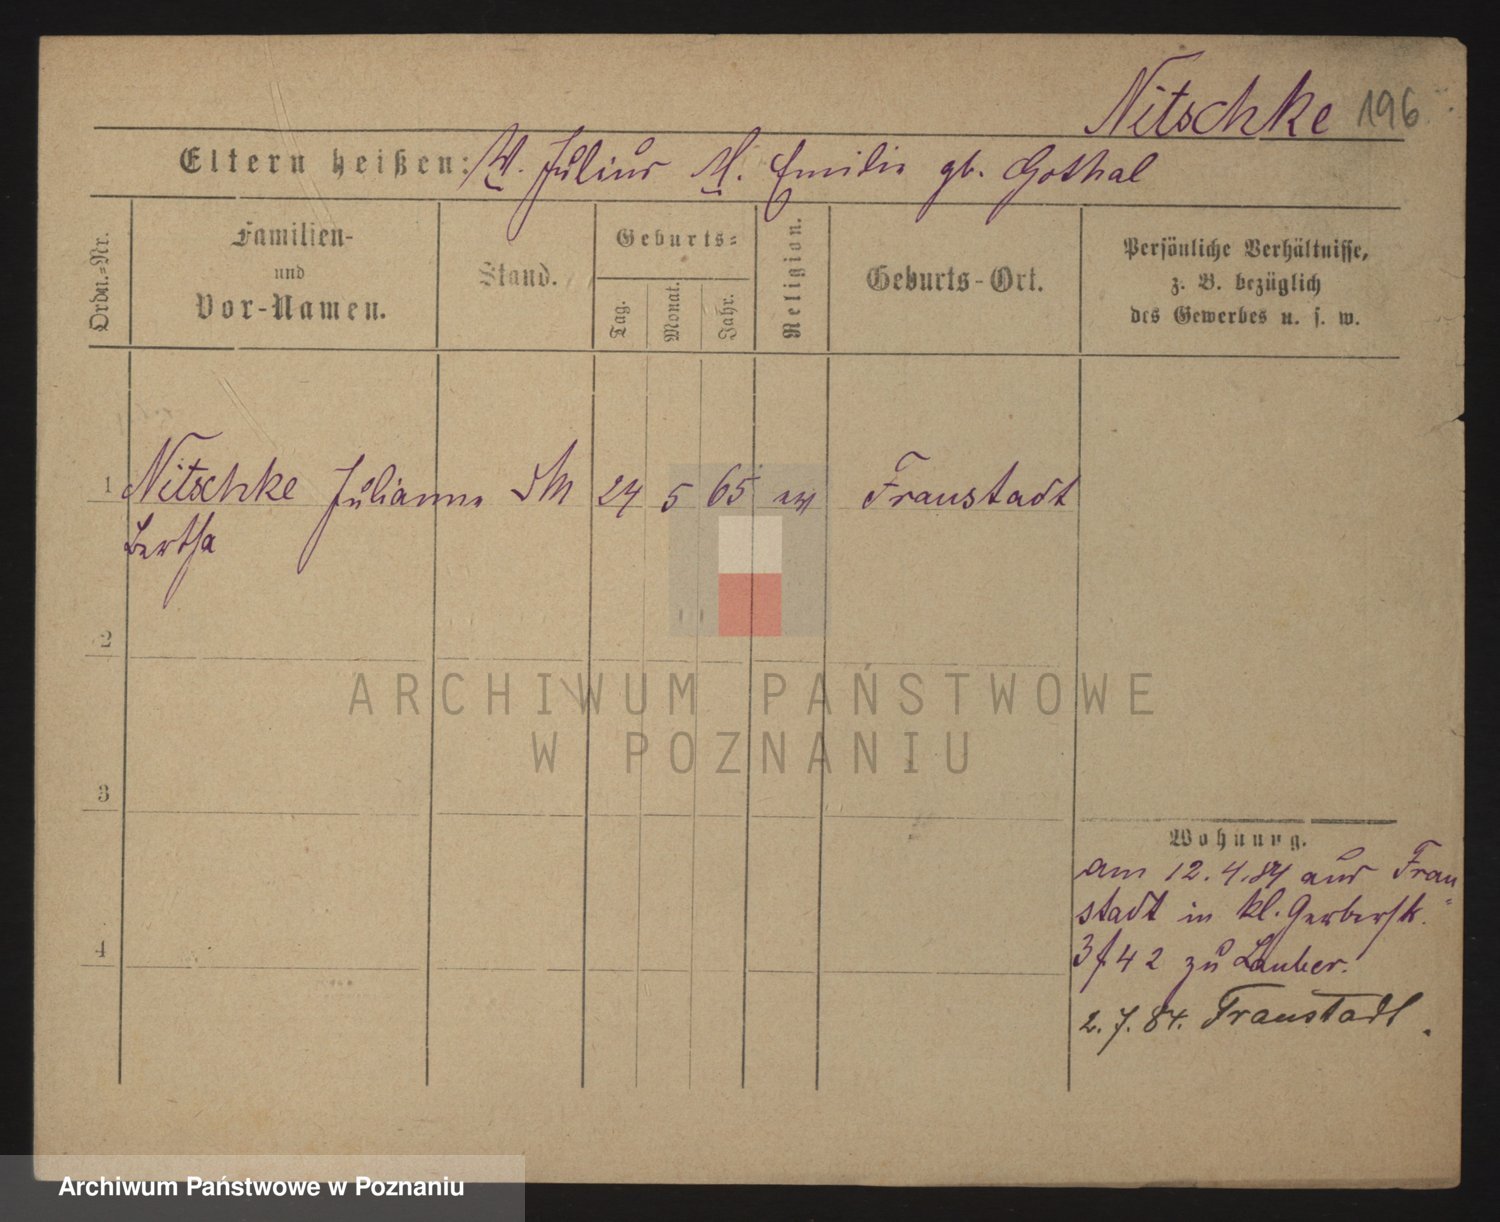 Nitschke 196
Eltern heißen: V. Julius M. Emilie gb. Gothal
Ordn.=Nr.
Familien-
und
Vor-Namen.
Stand.
Geburts=
Tag.
Monat.
Jahr.
Religion.
Geburts-Ort.
Persönliche Verhältnisse,
z. B. bezüglich
des Gewerbes u. s. w.
1 Nitschke Julianne 24 5 65 ev Fraustadt
Bertha
2
ARCHIWUM PAŃSTWOWE
W POZNANIU
3
Wohnung.
am 12.4.84 aus Frau
stadt in kl. Gerberstr.
4
42 zu Lauber.
2.7.84. Fraustadt.
Archiwum Państwowe w Poznaniu